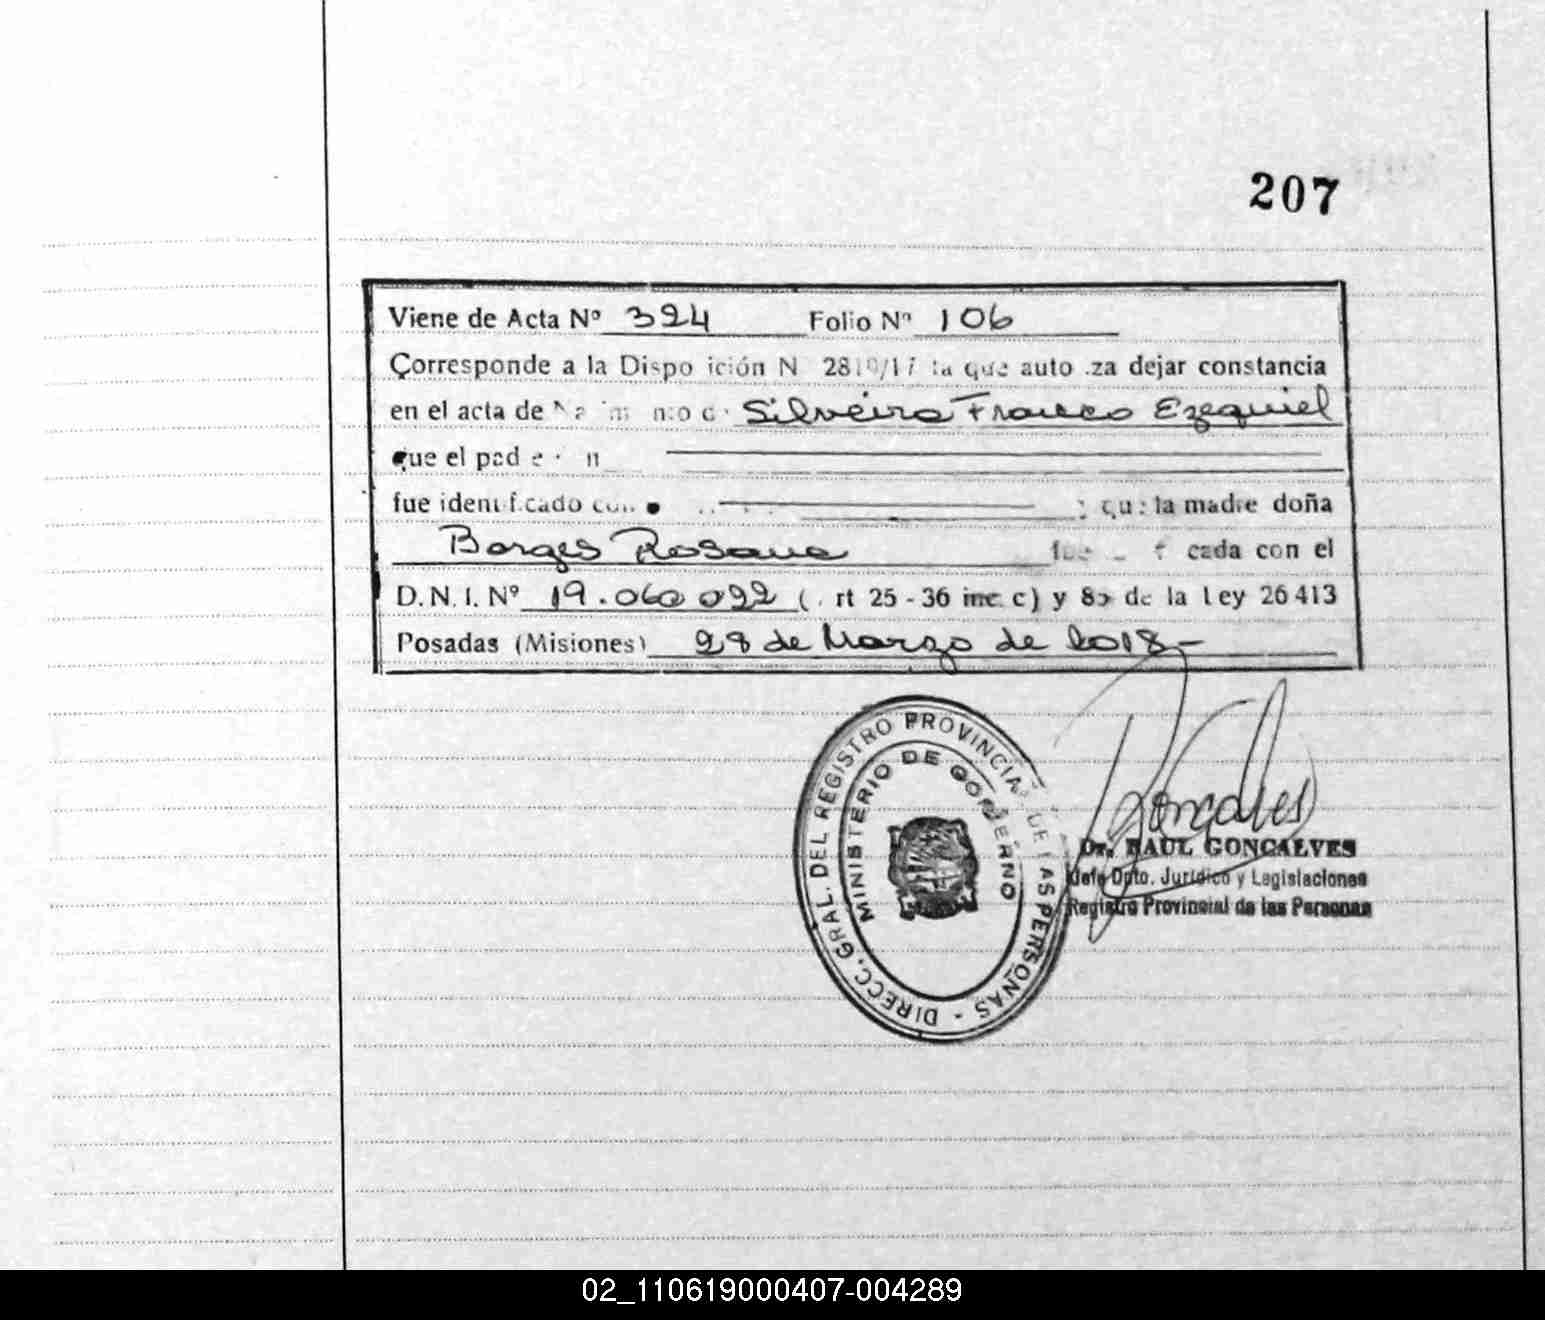 207
Viene de Acta Nº 324 Folio Nº 106
Corresponde a la Dispo ición N 2810/17 la que auto za dejar constancia
en el acta de Silveira Franco Ezequiel
que el pad e
fue identificado con que la madre doña
Borges Rosana fue cada con el
D.N.I. Nº 19.060.092 ( rt 25 - 36 inc. c) y 85 de la Ley 26413
Posadas (Misiones) 28 de Marzo de 2018-
DIRECC. GRAL. DEL REGISTRO PROVINCIAL DE LAS PERSONAS -
MINISTERIO DE GOBIERNO
Goncalves
Dr. RAUL GONCALVES
Jefe Dpto. Jurídico y Legislaciones
Registro Provincial de las Personas
02_110619000407-004289